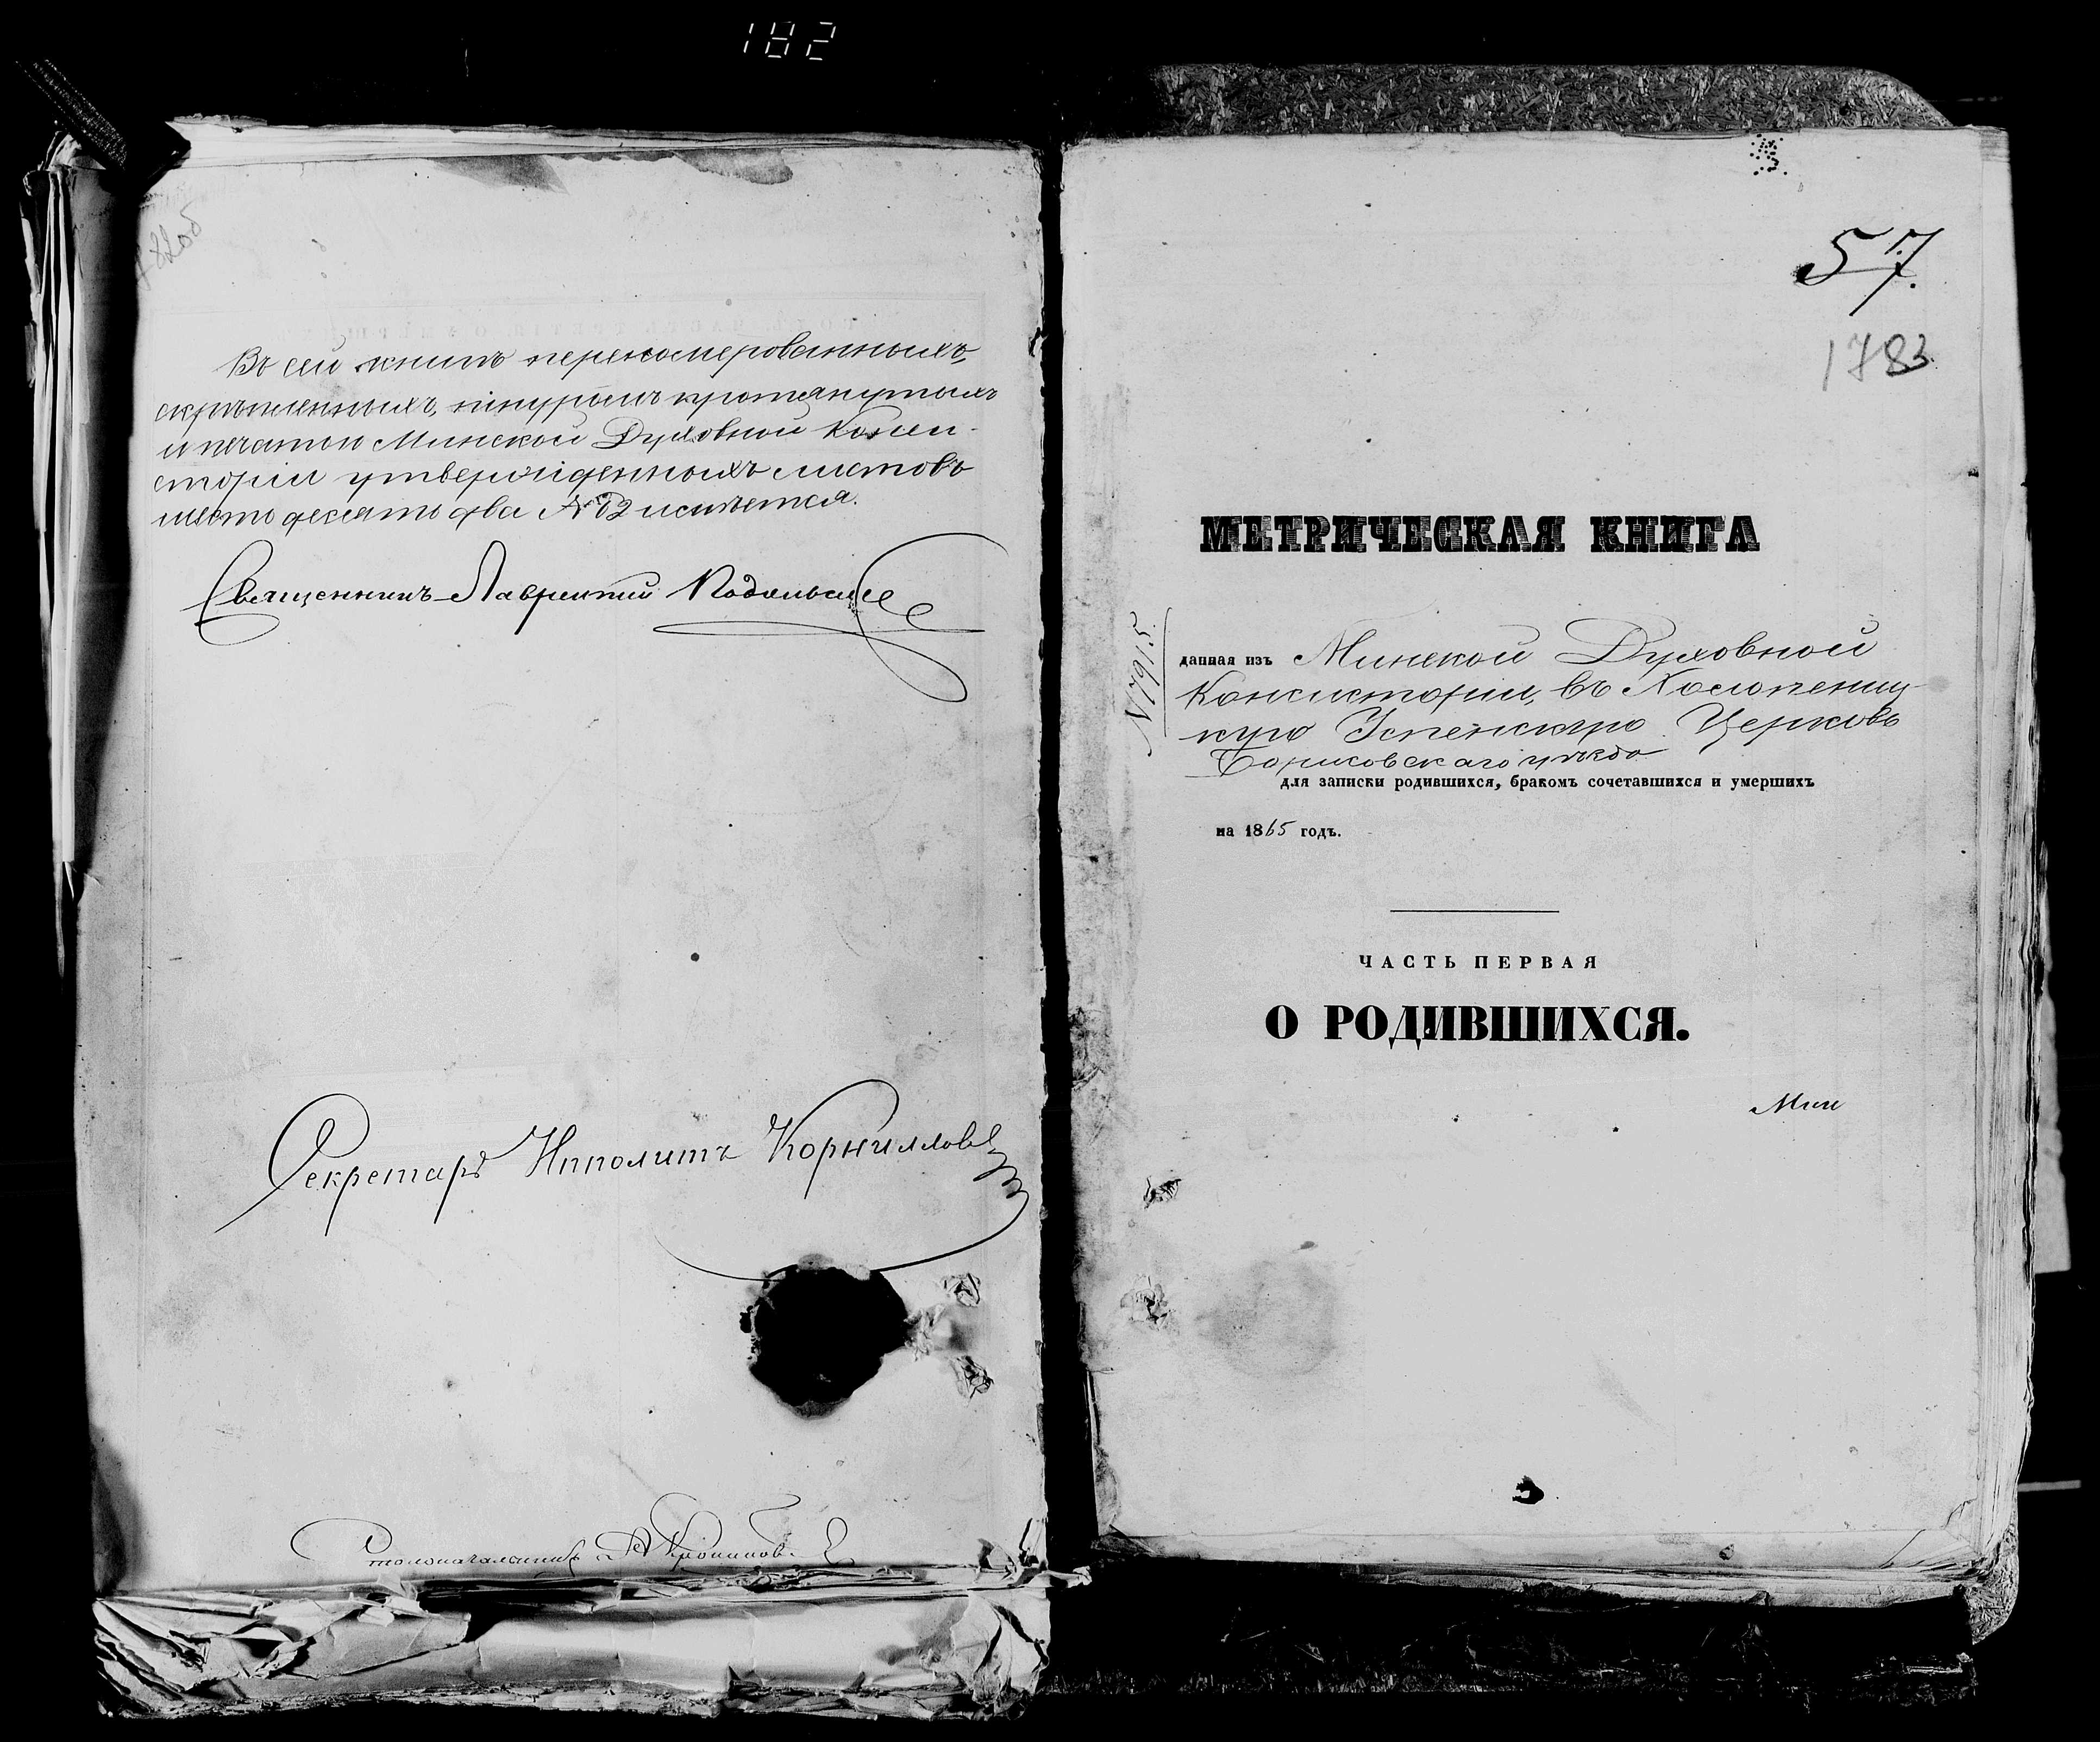 182
Въ сей книгѣ переномерованныхъ,
скрѣпленныхъ, шнуромъ протянутыхъ
и печатью Минской Духовной Конси-
сторіи утвержденныхъ листовъ
шестьдесятъ два № 62 числится.
Священникъ Лаврентий
Секретарь Ипполитъ Корниллов
Столоначальникъ
57.
1783
МЕТРИЧЕСКАЯ КНИГА
№ 7915.
данная изъ Минской Духовной
Консисторіи, въ Холопенич-
кую Успенскую Церковь
Борисовскаго уѣзда
для записки родившихся, бракомъ сочетавшихся и умершихъ
на 1865 годъ.
ЧАСТЬ ПЕРВАЯ
О РОДИВШИХСЯ.
Мин